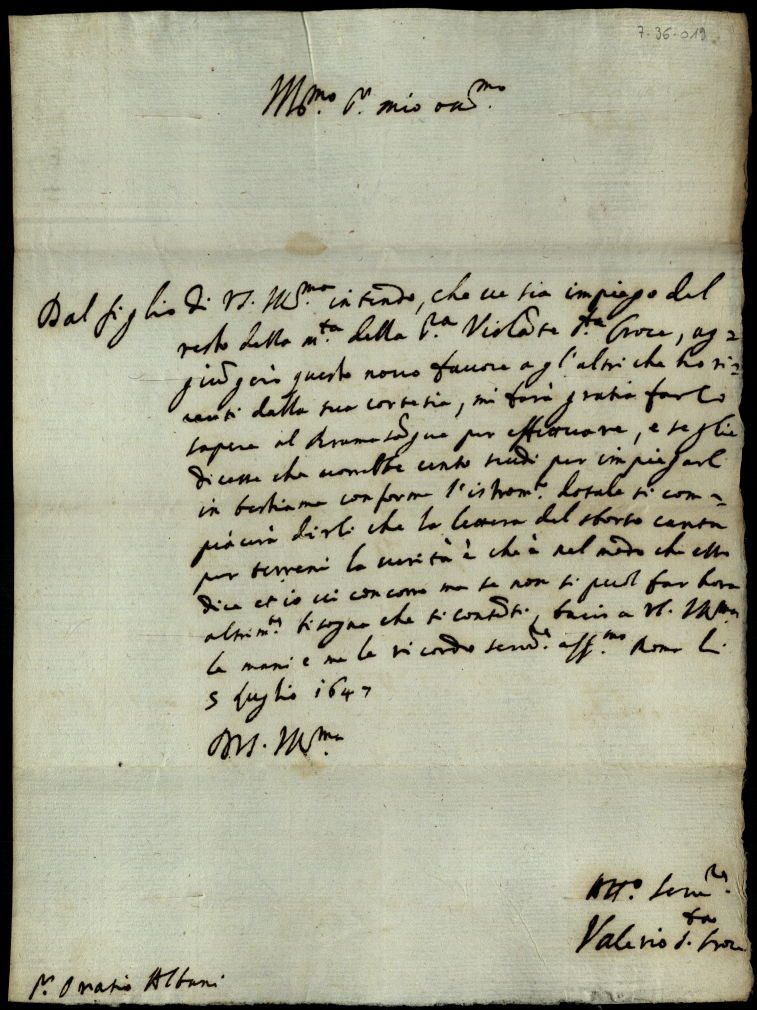 7-36-019
Ill.mo S.r mio oss.mo
Dal figlio di V.S. Ill.ma intendo, che ue sia impiego del
resto della m.ta della S.ra Violāte S.ta Croce, ag=
giūgerò questo nouo fauore agl'altri che ho ri=
ceuti dalla sua cortesia, mi farà gratia farlo
sapere al Bramasāgue per effettuare, e se gli
dicesse che uorrebbe cento scudi per impiegarl
in bestiame conforme l'istrom.to dotale si com=
piacerà dirli che la lettera del sborso canta
per terreni la uerità è che è nel modo che esso
dice et io ui concorro ma se non si può far hora
altrim.te bisogna che si contēti, bacio a V.S. Ill.ma
le mani e me le ricordo seru.re aff.mo Roma li
5 luglio 1647
D.V.S. Ill.ma
Aff.o Seru.re
Valerio S.ta Croce
S.r Oratio Albani